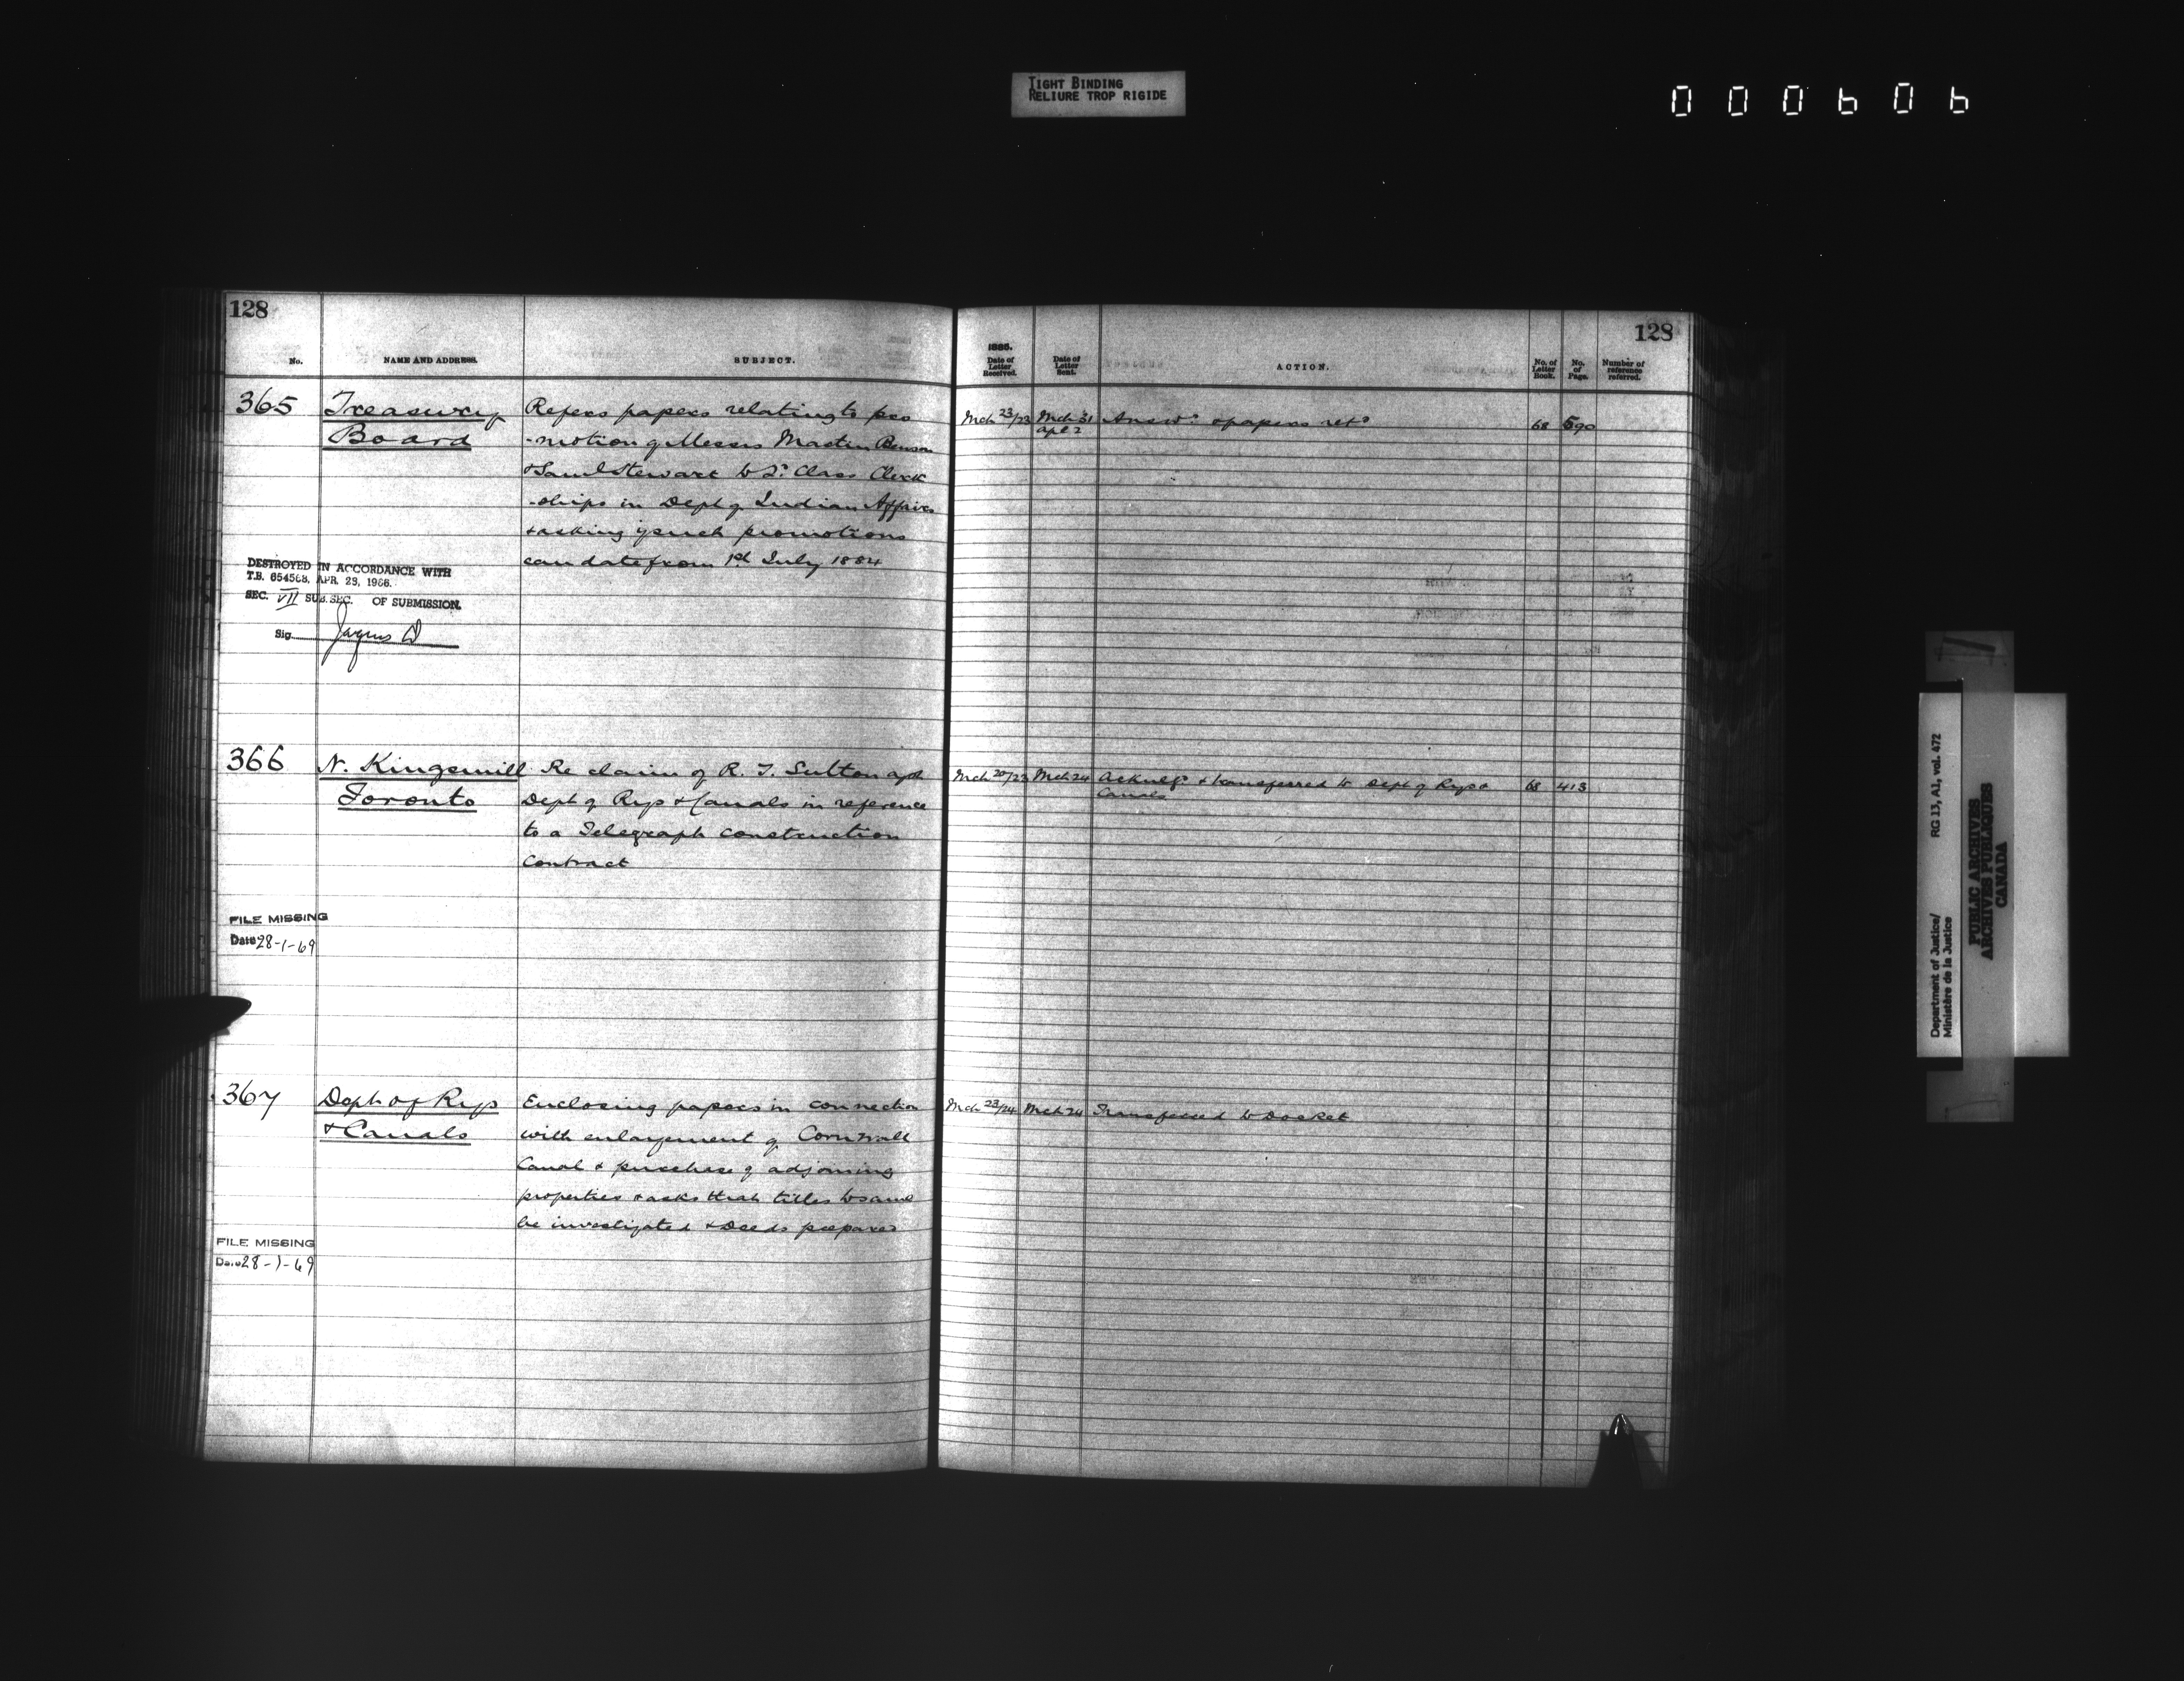 TIGHT BINDING
RELIURE TROP RIGIDE
000606
128
No.
NAME AND ADDRESS.
SUBJECT.
365
Treasury
Board
Refers papers relating to pro
-motion of Messrs Martin Benson
& Saml Stewart to 2d Class Clerk
-ships in Dept of Indian Affairs
& asking if such promotions
can date from 1st July 1884
DESTROYED IN ACCORDANCE WITH
T.B. 654568, APR. 29, 1966.
SEC. VII SUB. SEC. OF SUBMISSION.
Sig.
366
N. Kingsmill
Toronto
Re claim of R. T. Sutton agst
Dept of Rys & Canals in reference
to a Telegraph construction
Contract
FILE MISSING
Date 28-1-69
367
Dept of Rys
& Canals
Enclosing papers in connection
with enlargement of Cornwall
Canal & purchase of adjoining
properties & asks that titles to same
be investigated & Deeds prepared
FILE MISSING
Date 28-1-69
128
1885.
Date of
Letter
Received.
Date of
Letter
Sent.
ACTION.
No. of
Letter
Book.
No.
of
Page.
Number of
reference
referred.
Mch 23/23 Mch 31 Answd & papers retd 68 590
Apl 2
Mch 20/23 Mch 24 Acknlgd & transferred to Dept of Rys & 68 413
Canals
Mch 23/24 Mch 24 Transferred to Docket
Department of Justice/ RG 13, A1, vol. 472
Ministère de la Justice
PUBLIC ARCHIVES
ARCHIVES PUBLIQUES
CANADA